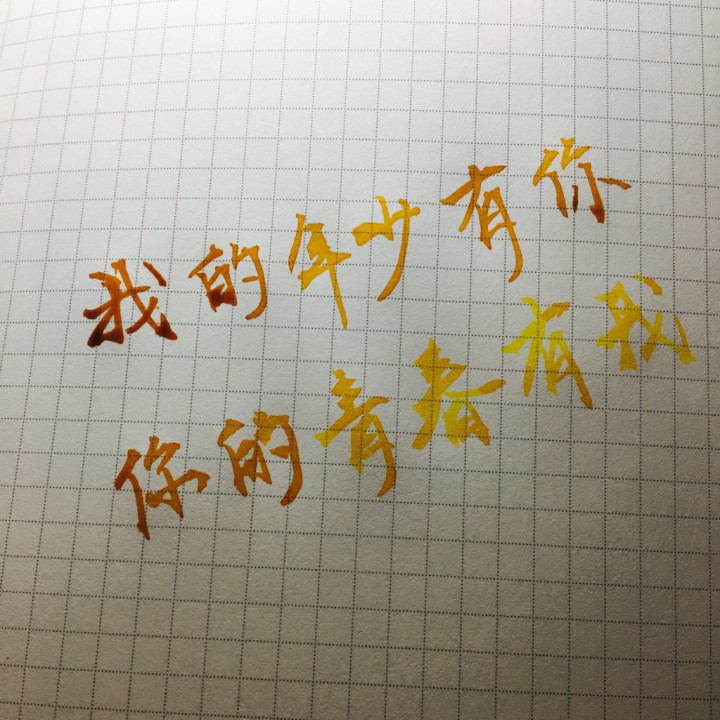 我的年少有你
你的青春有我